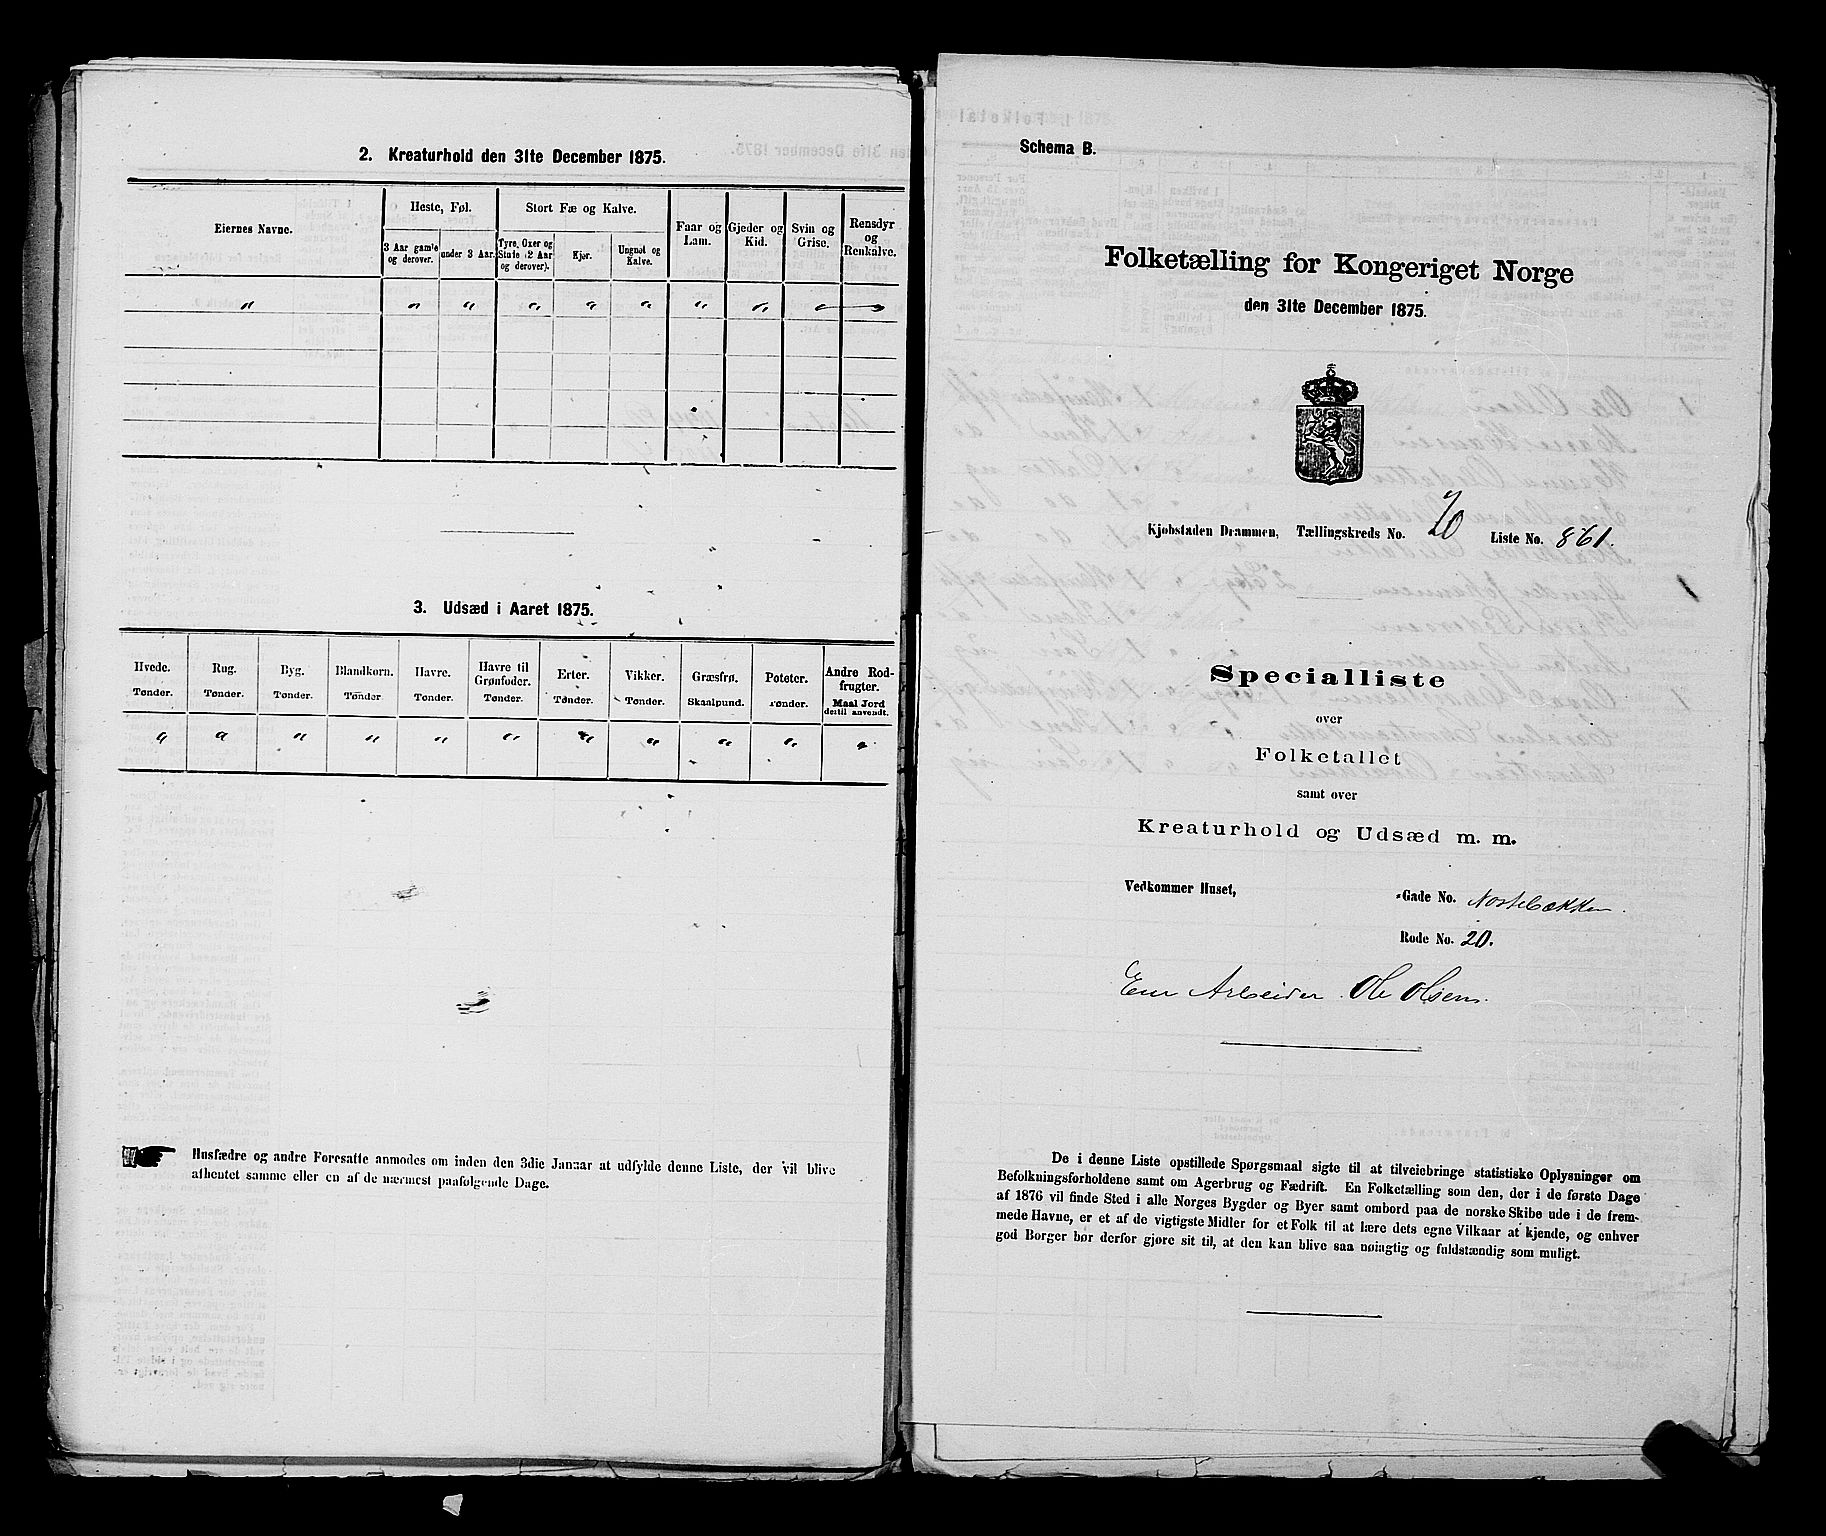 2. Kreaturhold den 31te December 1875.
Eiernes Navne.
Heste, Føl.
3 Aar gamle og derover.
under 3 Aar.
Stort Fæ og Kalve.
Tyre, Oxer og Stude (2 Aar og derover).
Kjør.
Ungnøt og Kalve.
Faar og Lam.
Gjeder og Kid.
Svin og Grise.
Rensdyr og Renkalve.
" " " " " " " "
3. Udsæd i Aaret 1875.
Hvede. Tønder.
Rug. Tønder.
Byg. Tønder.
Blandkorn. Tønder
Havre. Tønder.
Havre til Grønfoder. Tønder.
Erter. Tønder.
Vikker. Tønder.
Græsfrø. Skaalpund.
Poteter. Tønder.
Andre Rodfrugter. Maal Jord dertil anvendt.
" " " " " " " " " " "
Husfædre og andre Foresatte anmodes om inden den 3die Januar at udfylde denne Liste, der vil blive
afhentet samme eller en af de nærmest paafølgende Dage.
Schema B.
Folketælling for Kongeriget Norge
den 31te December 1875.
Kjøbstaden Drammen, Tællingskreds No. Liste No. 861.
Specialliste
over
Folketallet
samt over
Kreaturhold og Udsæd m. m.
Vedkommer Huset, Gade No.
Rode No. 20.
Eier Arbeider Ole Olsen.
De i denne Liste opstillede Spørgsmaal sigte til at tilveiebringe statistiske Oplysninger om
Befolkningsforholdene samt om Agerbrug og Fædrift. En Folketælling som den, der i de første Dage
af 1876 vil finde Sted i alle Norges Bygder og Byer samt ombord paa de norske Skibe ude i de frem-
mede Havne, er et af de vigtigste Midler for et Folk til at lære dets egne Vilkaar at kjende, og enhver
god Borger bør derfor gjøre sit til, at den kan blive saa nøiagtig og fuldstændig som muligt.